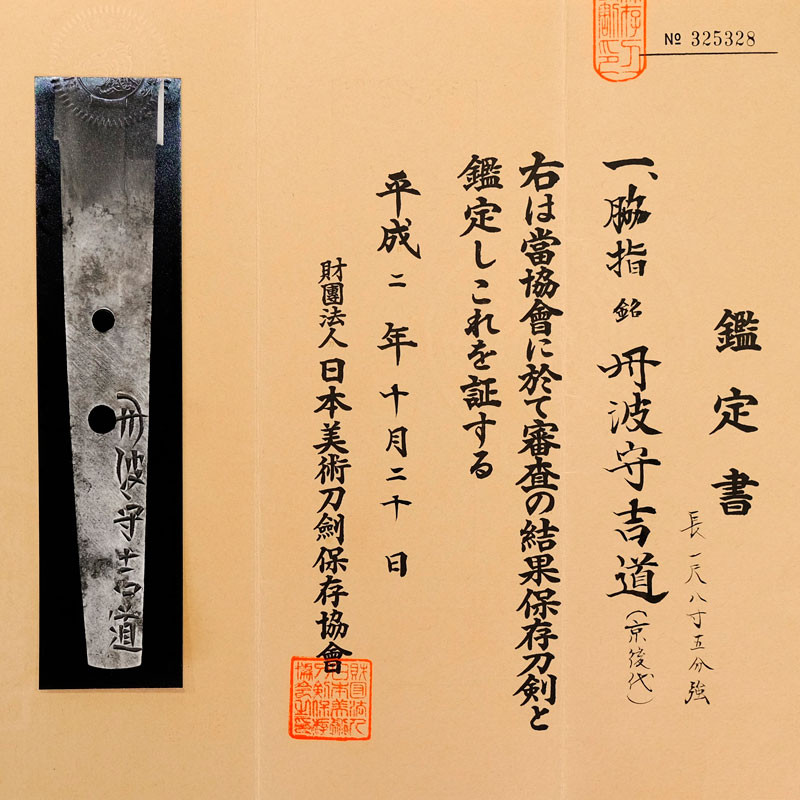 № 325328
鑑定書
長 一尺八寸五分強
一、脇指 銘 丹波守吉道(京後代)
右は當協會に於て審査の結果保存刀剣と
鑑定しこれを証する
平成二年十月二十日
財團法人日本美術刀劍保存協會
丹波守吉道